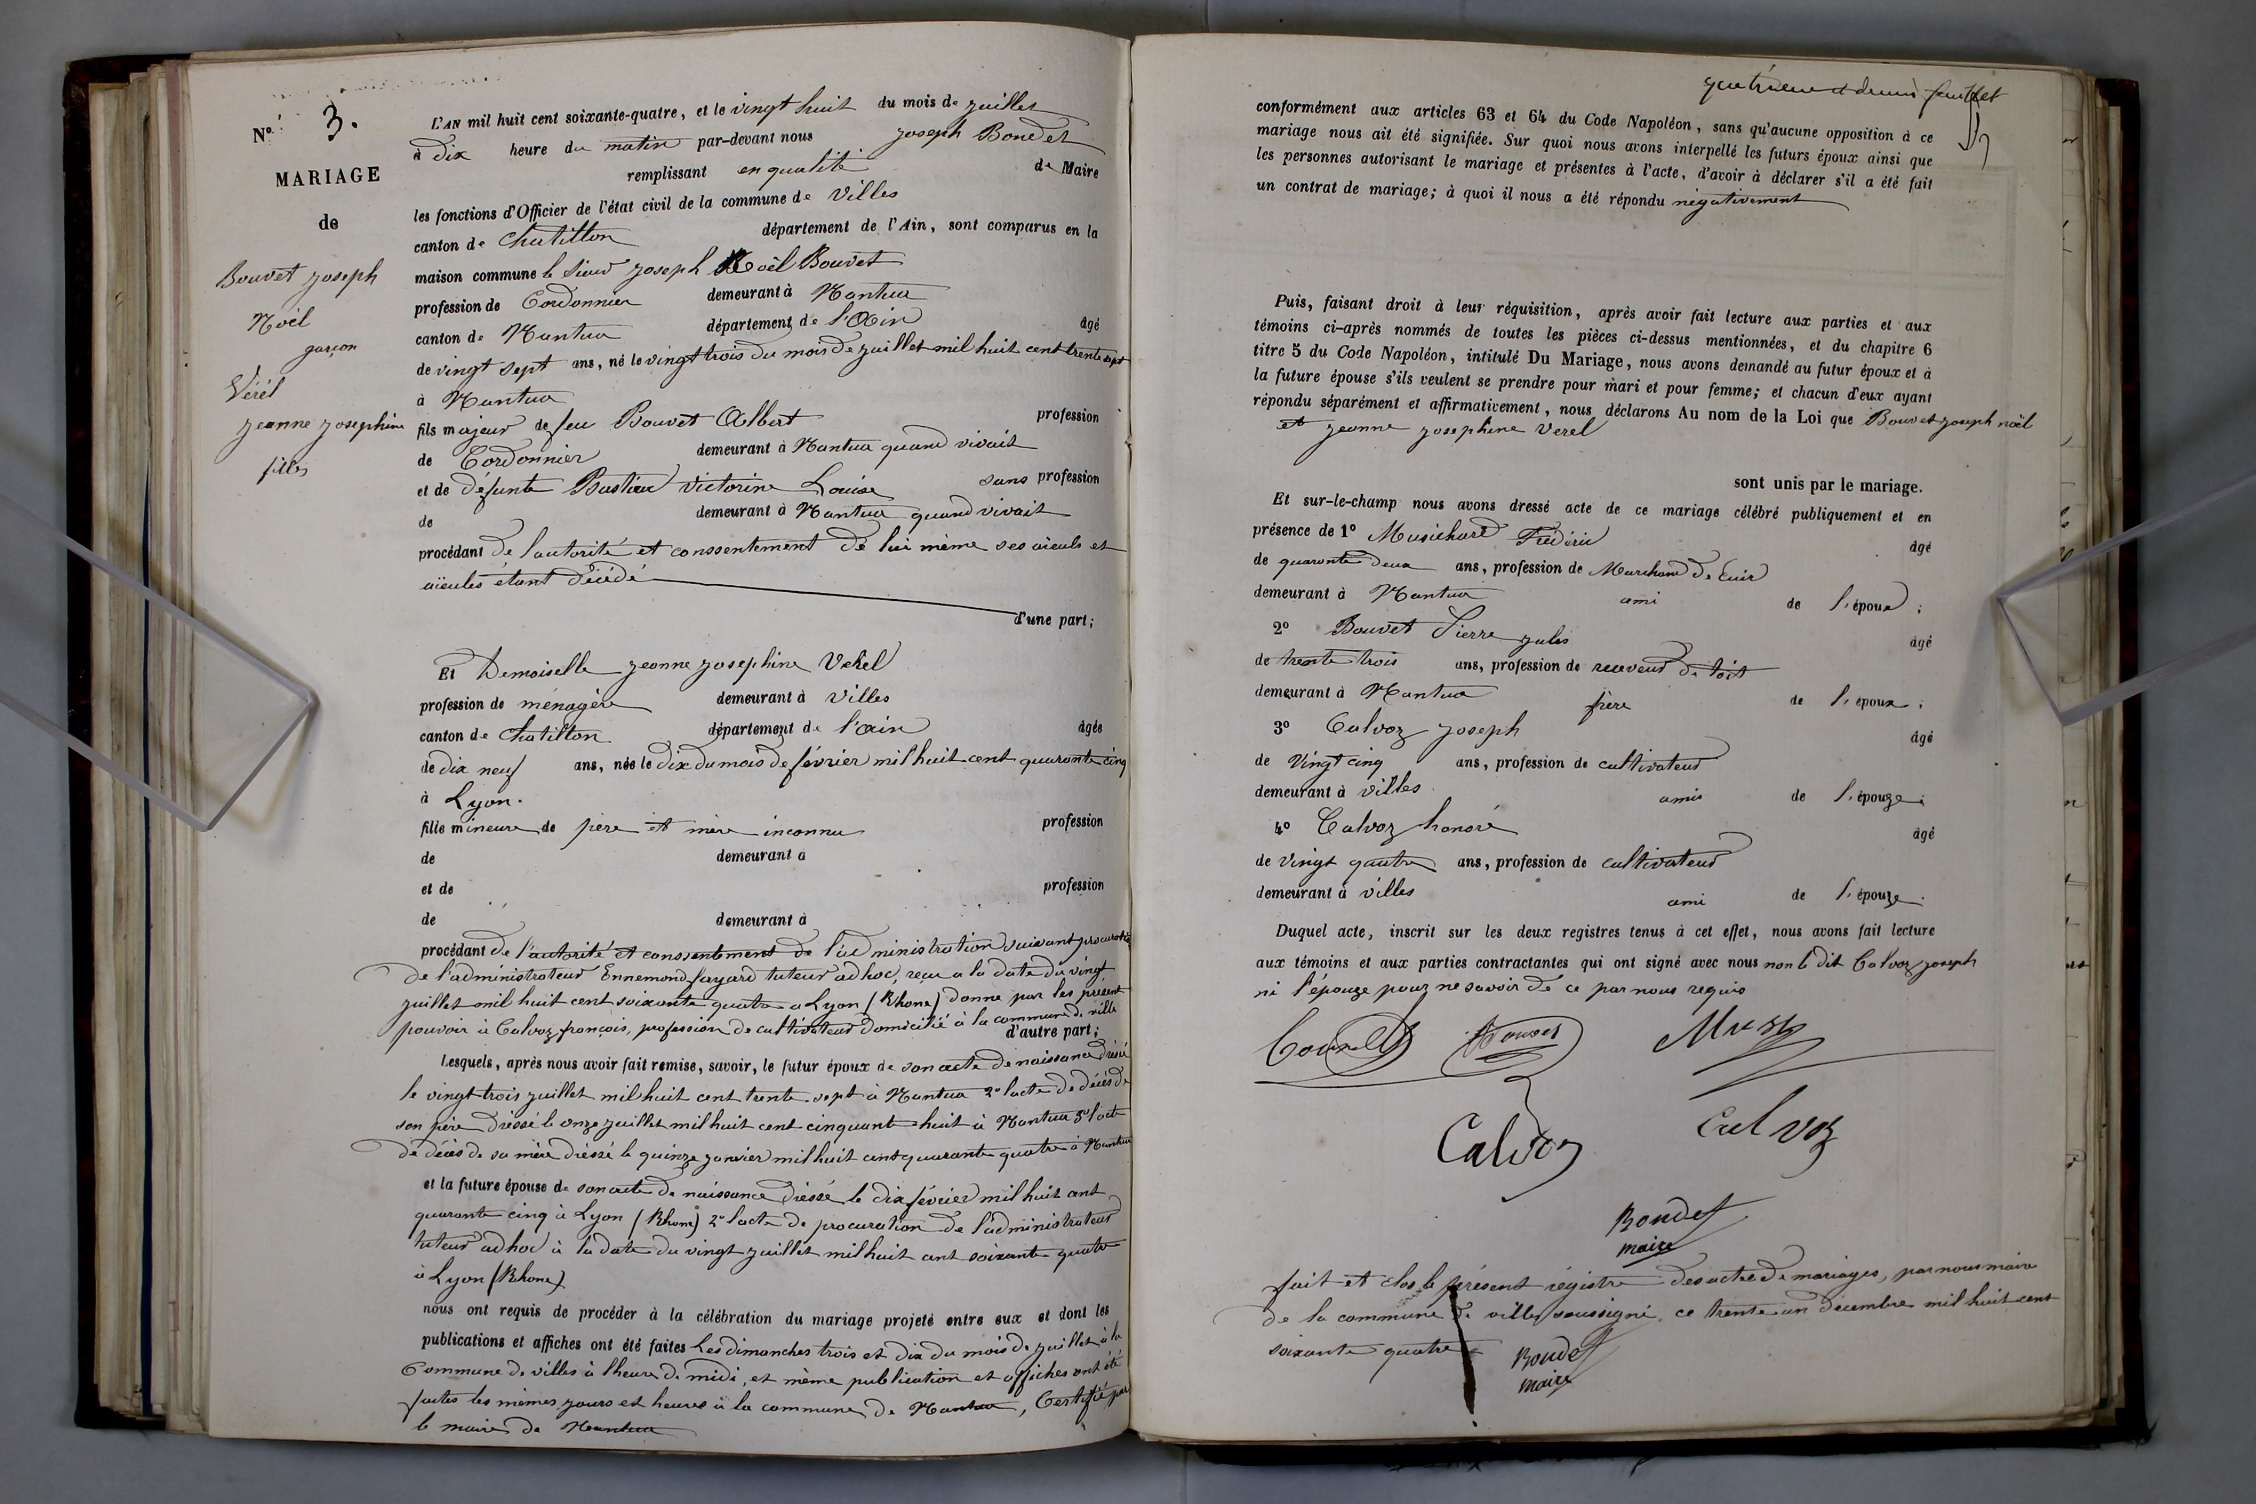 N° 3.
MARIAGE
de
Bouvet Joseph
Noël
garçon
Vérél
Jeanne Josephine
filles
L'AN mil huit cent soixante-quatre, et le vingt huit du mois de juillet
à dix heure du matin par-devant nous Joseph Bondet
remplissant en qualité de Maire
les fonctions d'Officier de l'état civil de la commune de Villes
canton de Chatillon département de l'Ain, sont comparus en la
maison commune le Sieur Joseph Noël Bouvet
profession de Cordonnier demeurant à Nantua
canton de Nantua département de l'Ain âgé
de vingt sept ans, né le vingt trois du mois de juillet mil huit cent trente sept
à Nantua
fils majeur de feu Bouvet Albert profession
de Cordonnier demeurant à Nantua quand vivait
et de défunte Bastian victorine Louise sans profession
de demeurant à Nantua quand vivait
procédant de l'autorité et conssentement de lui même ses aïeuls et
aïeules étant décédé
d'une part;
Et Demoiselle Jeanne Josephine Verel
profession de ménagère demeurant à Villes
canton de Chatillon département de l'ain âgée
de dix neuf ans, née le dix du mois de février mil huit cent quarante cinq
à Lyon.
fille mineure de père et mère inconnu profession
de demeurant à
et de profession
de demeurant à
procédant de l'autorité et conssentement de l'administration suivant
de l'administrateur Ennemond fayard tuteur ad hoc, reçu a la date du vingt
juillet mil huit cent soixante quatre a Lyon (Rhone) donne par les présent
pouvoir à Calvoz françois, profession de cultivateur domicilié à la commune de ville
d'autre part;
Lesquels, après nous avoir fait remise, savoir, le futur époux de son acte de naissance dréssé
le vingt trois juillet mil huit cent trente sept à Nantua 2° l'acte de décés de
son père dréssé le onze juillet mil huit cent cinquante huit à Nantua 3° l'acte
de décés de sa mère dréssé le quinze janvier mil huit cent quarante quatre à Nantua
et la future épouse de son acte de naissance dréssé le dix février mil huit cent
quarante cinq à Lyon (Rhone) 2° l'acte de procuration de l'administrateur
tuteur ad hoc à la date du vingt juillet mil huit cent soixante quatre
à Lyon (Rhone)
nous ont requis de procéder à la célébration du mariage projeté entre eux et dont les
publications et affiches ont été faites Les dimanches trois et dix du mois de juillet à la
Commune de villes à l'heure de midi, et même publication et affiches ont été
faites les mêmes jours et heures à la commune de Nantua, Certifié par
le maire de Nantua
quatrième et dernier feuillet
conformément aux articles 63 et 64 du Code Napoléon, sans qu'aucune opposition à ce
mariage nous ait été signifiée. Sur quoi nous avons interpellé les futurs époux ainsi que
les personnes autorisant le mariage et présentes à l'acte, d'avoir à déclarer s'il a été fait
un contrat de mariage; à quoi il nous a été répondu négativement
Puis, faisant droit à leur réquisition, après avoir fait lecture aux parties et aux
témoins ci-après nommés de toutes les pièces ci-dessus mentionnées, et du chapitre 6
titre 5 du Code Napoléon, intitulé Du Mariage, nous avons demandé au futur époux et à
la future épouse s'ils veulent se prendre pour mari et pour femme; et chacun d'eux ayant
répondu séparément et affirmativement, nous déclarons Au nom de la Loi que Bouvet Joseph noël
et Jeanne Josephine Verel
sont unis par le mariage.
Et sur-le-champ nous avons dressé acte de ce mariage célébré publiquement et en
présence de 1° Musichard Frédéric âgé
de quarante deux ans, profession de Marchand de Cuir
demeurant à Nantua ami de l'époux;
2° Bouvet Pierre Jules âgé
de trente trois ans, profession de receveur
demeurant à Nantua frère de l'époux;
3° Calvoz Joseph âgé
de Vingt cinq ans, profession de cultivateur
demeurant à villes amis de l'épouze;
4° Calvoz honoré âgé
de Vingt quatre ans, profession de cultivateur
demeurant à villes ami de l'épouze.
Duquel acte, inscrit sur les deux registres tenus à cet effet, nous avons fait lecture
aux témoins et aux parties contractantes qui ont signé avec nous non le dit Calvoz Joseph
ni l'épouze pour ne savoir de ce par nous requis
Bouvet
Calvoz
Calvoz
Bondet
maire
fait et clos le présent régistre des acte de mariages, par nous maire
de la commune de villes soussigné, ce trente un décembre mil huit cent
soixante quatre
Bondet
maire